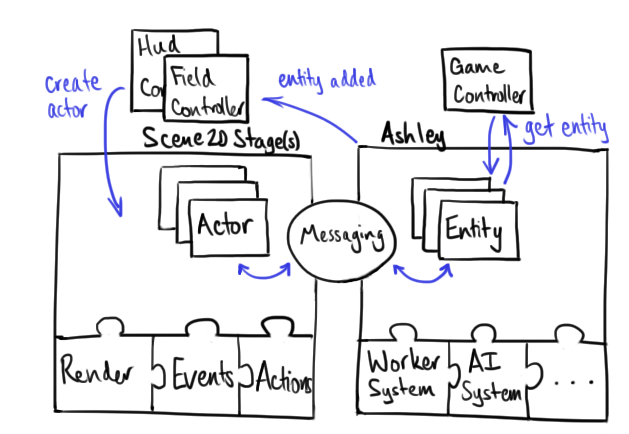 Hud
Co
Field
Controller
create
actor
entity added
Game
Controller
get entity
Scene2D Stage(s)
Ashley
Actor
Messaging
Entity
Render
Events
Actions
Worker
System
AI
System
...